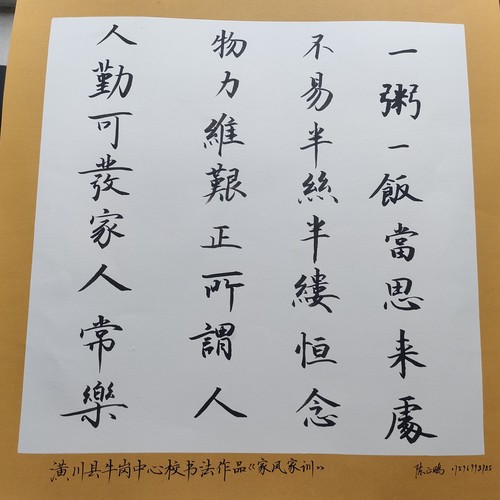 一粥一飯當思来處
不易半絲半縷恒念
物力維艱正所謂人
人勤可發家人常樂
潢川县牛岗中心校书法作品《家风家训》